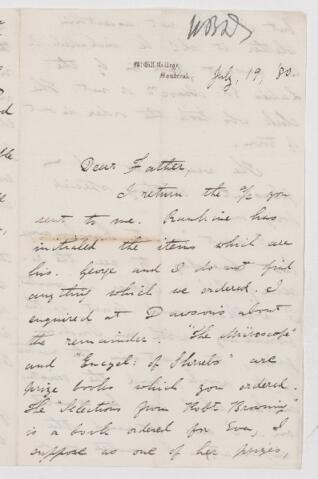 WBD
McGill College,
Montreal.
July, 19, 80.
Dear Father,
I return the a/c you
sent to me. Rankine has
initialed the items which are
his. George and I do not find
anything which we ordered. I
enquired at Dawsons about
the remainder. "The Microscope"
and "Encycl: of Shrubs" are
prize books which you ordered.
The "Selections from Robt Browning"
is a book ordered for Eva, I
suppose as one of her prizes,